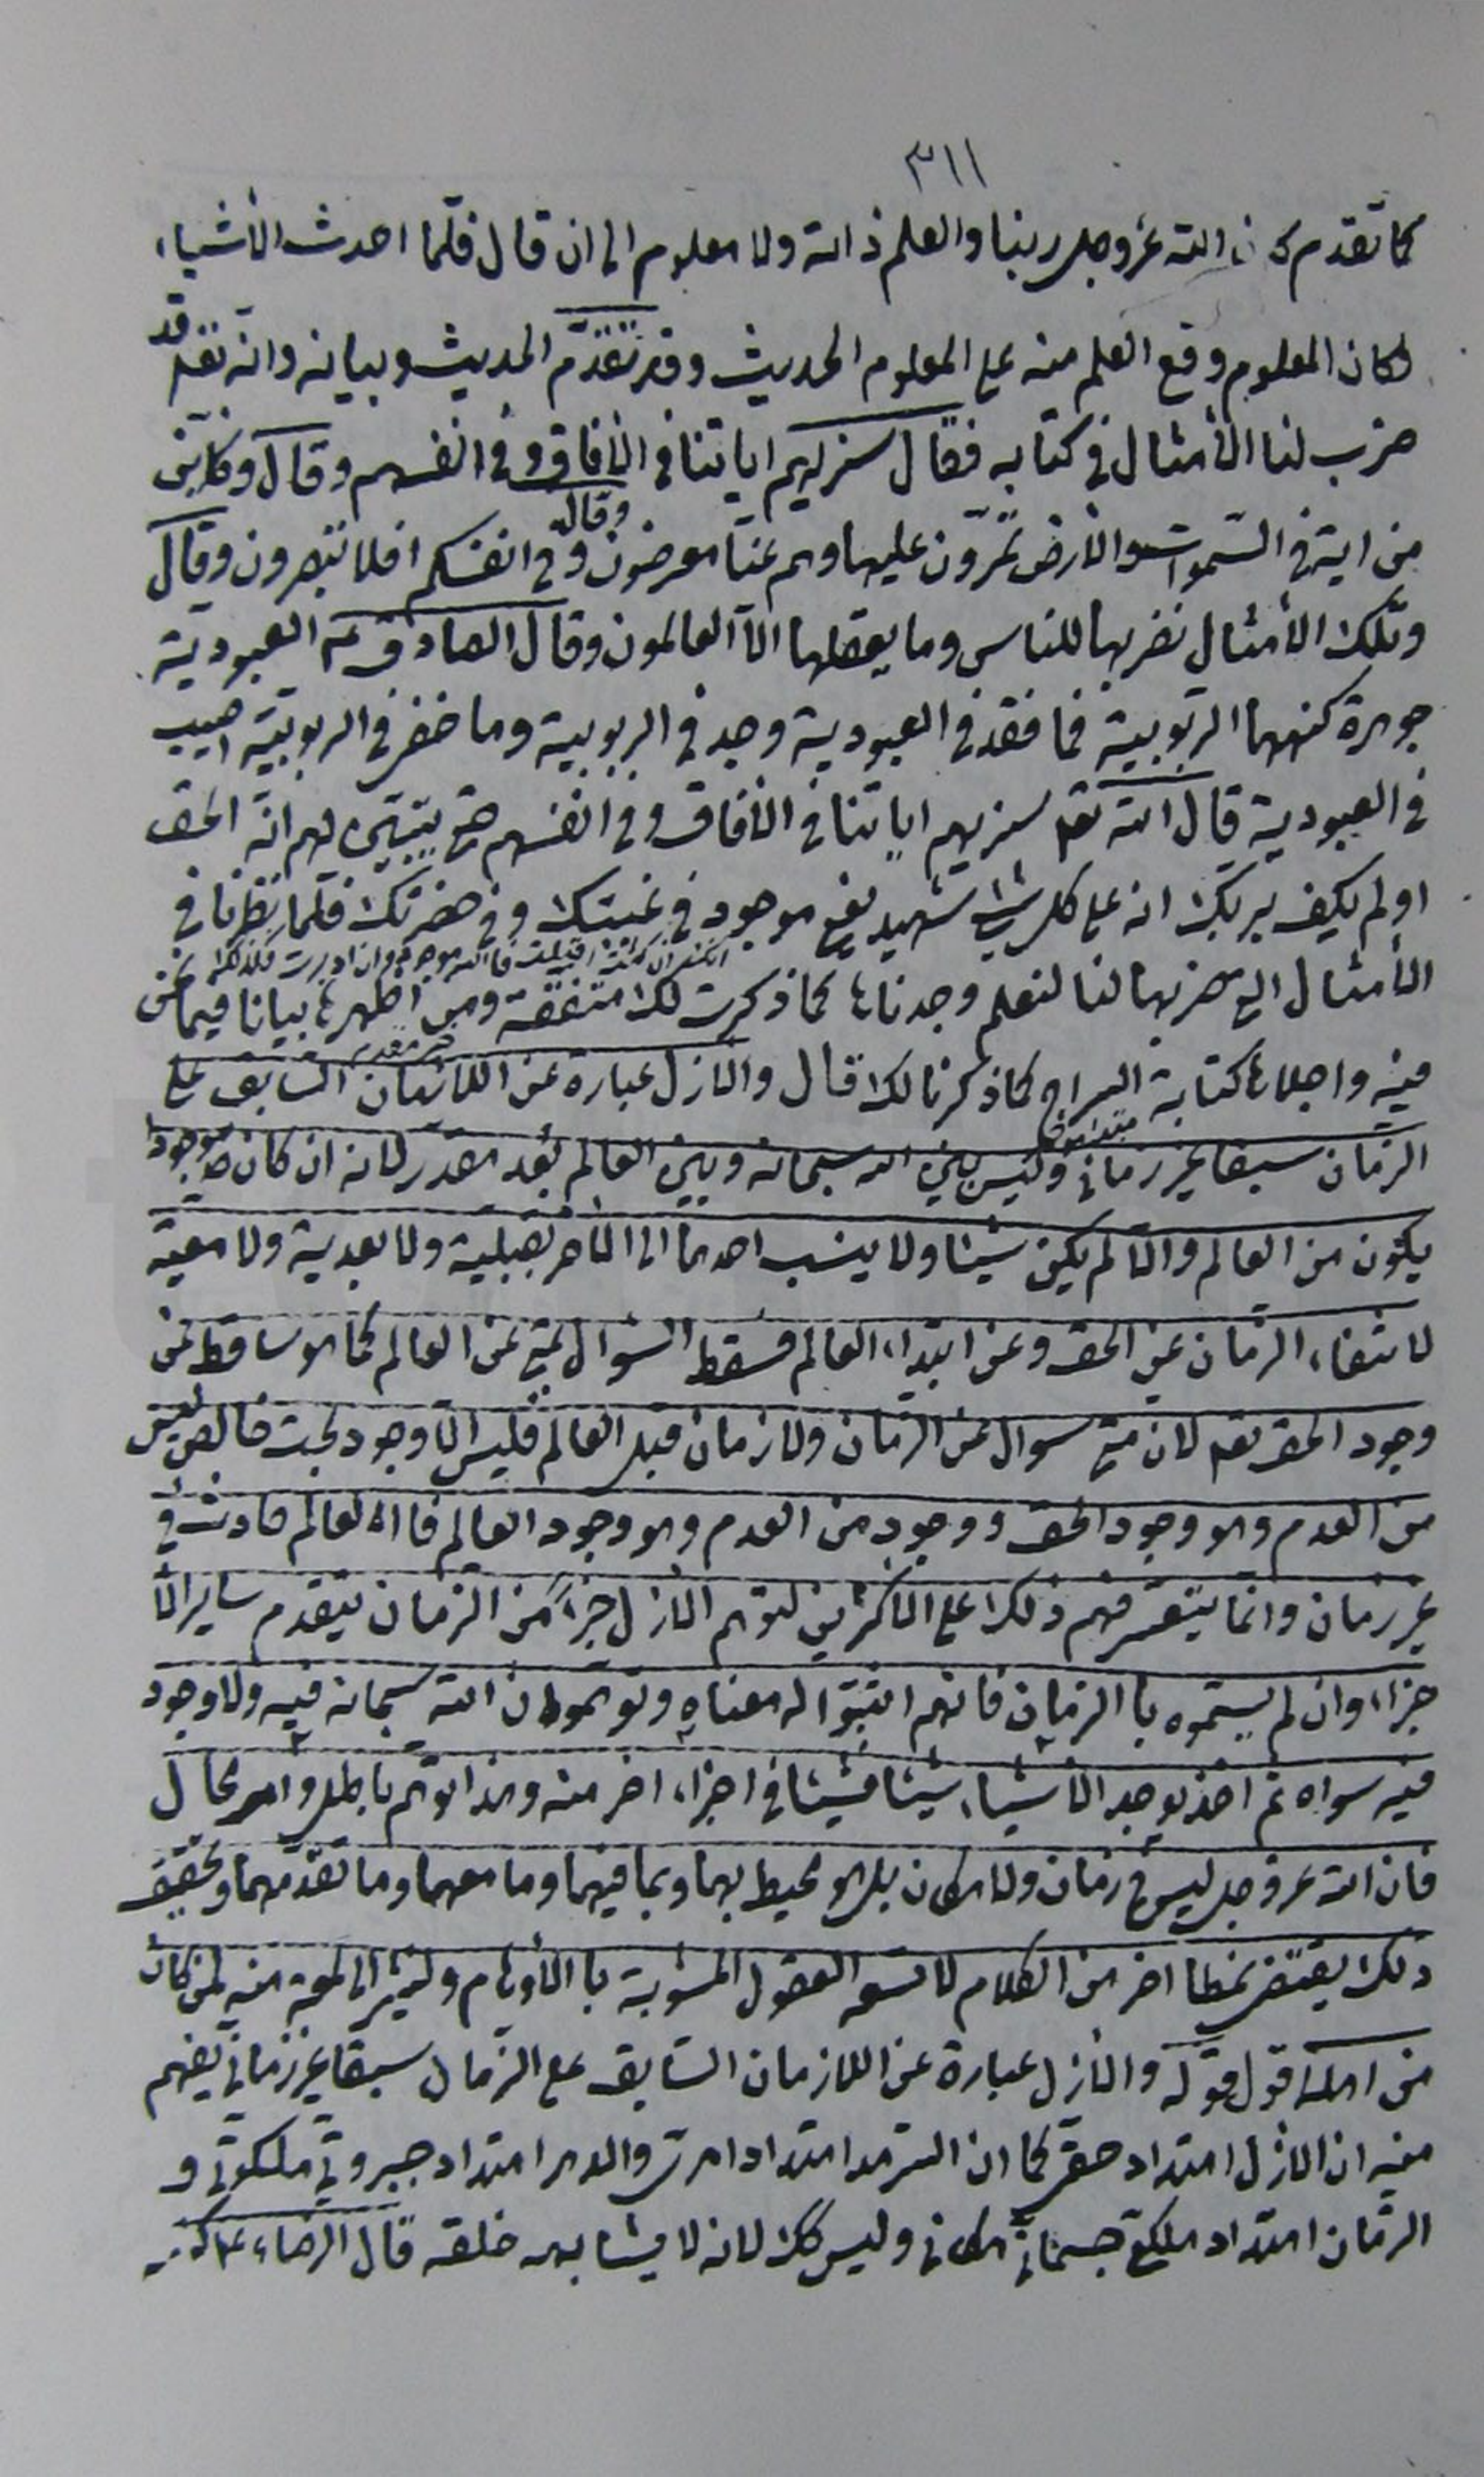 ٣١١
كما تقدم كان الله عز وجل ربنا والعلم ذاته ولا معلوم الى ان قال فلمّا احدث الأشياء
وكان المعلوم وقع العلم منه على المعلوم الحديث وقد تقدّم الحديث وبيانه وانّه تعالى قد
ضرب لنا الأمثال في كتابه فقال سنريهم اياتنا في الآفاق وفي انفسهم وقال وكأيّن
من اية في السّموات والأرض يمرّون عليها وهم عنها معرضون وقال وفي انفسكم افلا تبصرون وقال
وتلك الأمثال نضربها للناس وما يعقلها الّا العالمون وقال الصادق ع العبودية
جوهرة كنهها الربوبية فما فقد في العبودية وجد في الربوبية وما خفي في الربوبيّة اصيب
في العبودية قال الله تعالى سنريهم اياتنا في الآفاق وفي انفسهم حتى يتبيّن لهم انّه الحق
اولم يكف بربّك انه على كل شئ شهيد يعني موجود في غيبتك وفي حضرتك فلمّا نظرنا في
الأمثال التي ضربها لنا لنعلم وجدناها كما ذكرت لك متفقة ومن اظهرها بيانا فيما نحن
فيه واجلاها كتابة السراج كما ذكرنا لك قال والأزل عبارة عن اللازمان السّابق على
الزّمان سبقا غير زماني وليس بين الله سبحانه وبين العالم بُعد مقدّر لانه ان كان موجودا
يكون من العالم والّا لم يكن شيئا ولا ينسب احدهما الى الآخر بقبلية ولا بعدية ولا معيّة
لانتفاء الزّمان عن الحق وعن ابتداء العالم فسقط السّؤال بمتى عن العالم كما هو ساقط عن
وجود الحق تعالى لان متى سؤال عن الزمان ولا زمان قبل العالم فليس الّا وجود بحت خالص ليس
من العدم وهو وجود الحق ووجود من العدم وهو وجود العالم فالعالم حادث في
غير زمان وانّما يتعسّر فهم ذلك على الاكثرين لتوهم الازل جزءاً من الزمان يتقدم ساير الأ
جزاء وان لم يسمّوه بالزمان فانهم اثبتوا له معناه وتوهّموا ان الله سبحانه فيه ولا وجود
فيه سواه ثم اخذ يوجد الأشياء شيئا فشيئا في اجزاء اخر منه وهذا توهم باطل وامر محال
فان الله عز وجل ليس في زمان ولا مكان بل هو محيط بهما وبما فيهما وما معهما وما تقدّمهما وتحقيق
ذلك يقتضي نمطا اخر من الكلام لا تسعه العقول المشوبة بالأوهام ولنشر الى لمعة منه لمن كان
من اهله اقول قوله والأزل عبارة عن اللازمان السّابق على الزمان سبقا غير زماني يفهم
منه ان الازل امتداد حقّي كما ان السّرمد امتداد امري والدهر امتداد جبروتي ملكوتي و
الزّمان امتداد ملكي جسماني مكاني وليس كك لانه لا يشابهه خلقه قال الرضاء ع كنهه